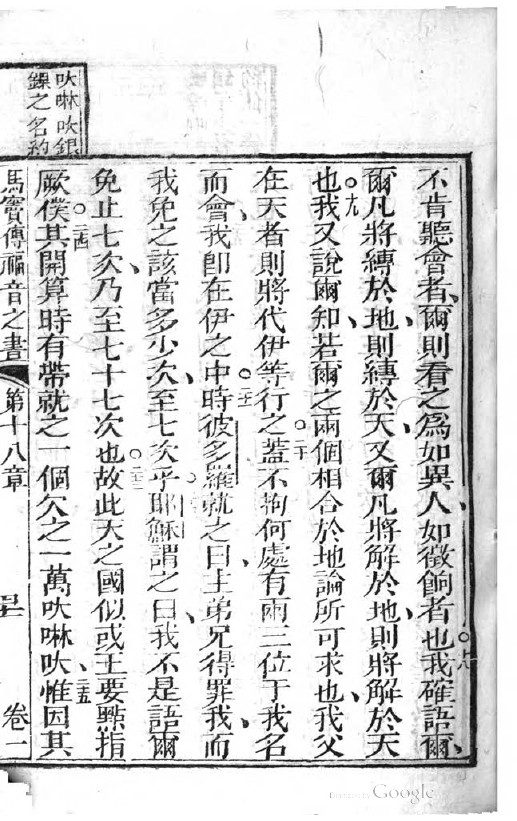 不肯聽會者、爾則看之為如異人、如徵餉者也○十八我確語爾、
爾凡將縛於地、則縛於天、又爾凡將解於地、則將解於天
也○十九我又說爾知、若爾之兩個相合於地論所可求也、我父
在天者則將代伊等行之○二十蓋不拘何處有兩三位于我名
而會、我卽在伊之中○二一時彼多羅就之曰、主弟兄得罪我、而
我免之該當多少次、至七次乎○耶穌謂之曰、我不是語爾
免止七次、乃至七十七次也○二三故此天之國似或王要點指
厥僕○二四其開算時有帶就之一個欠之一萬吙啉吙、二五惟因其
馬寶傳福音之書 第十八章 卷一
吙啉吙銀
鏍之名約
Digitized by Google